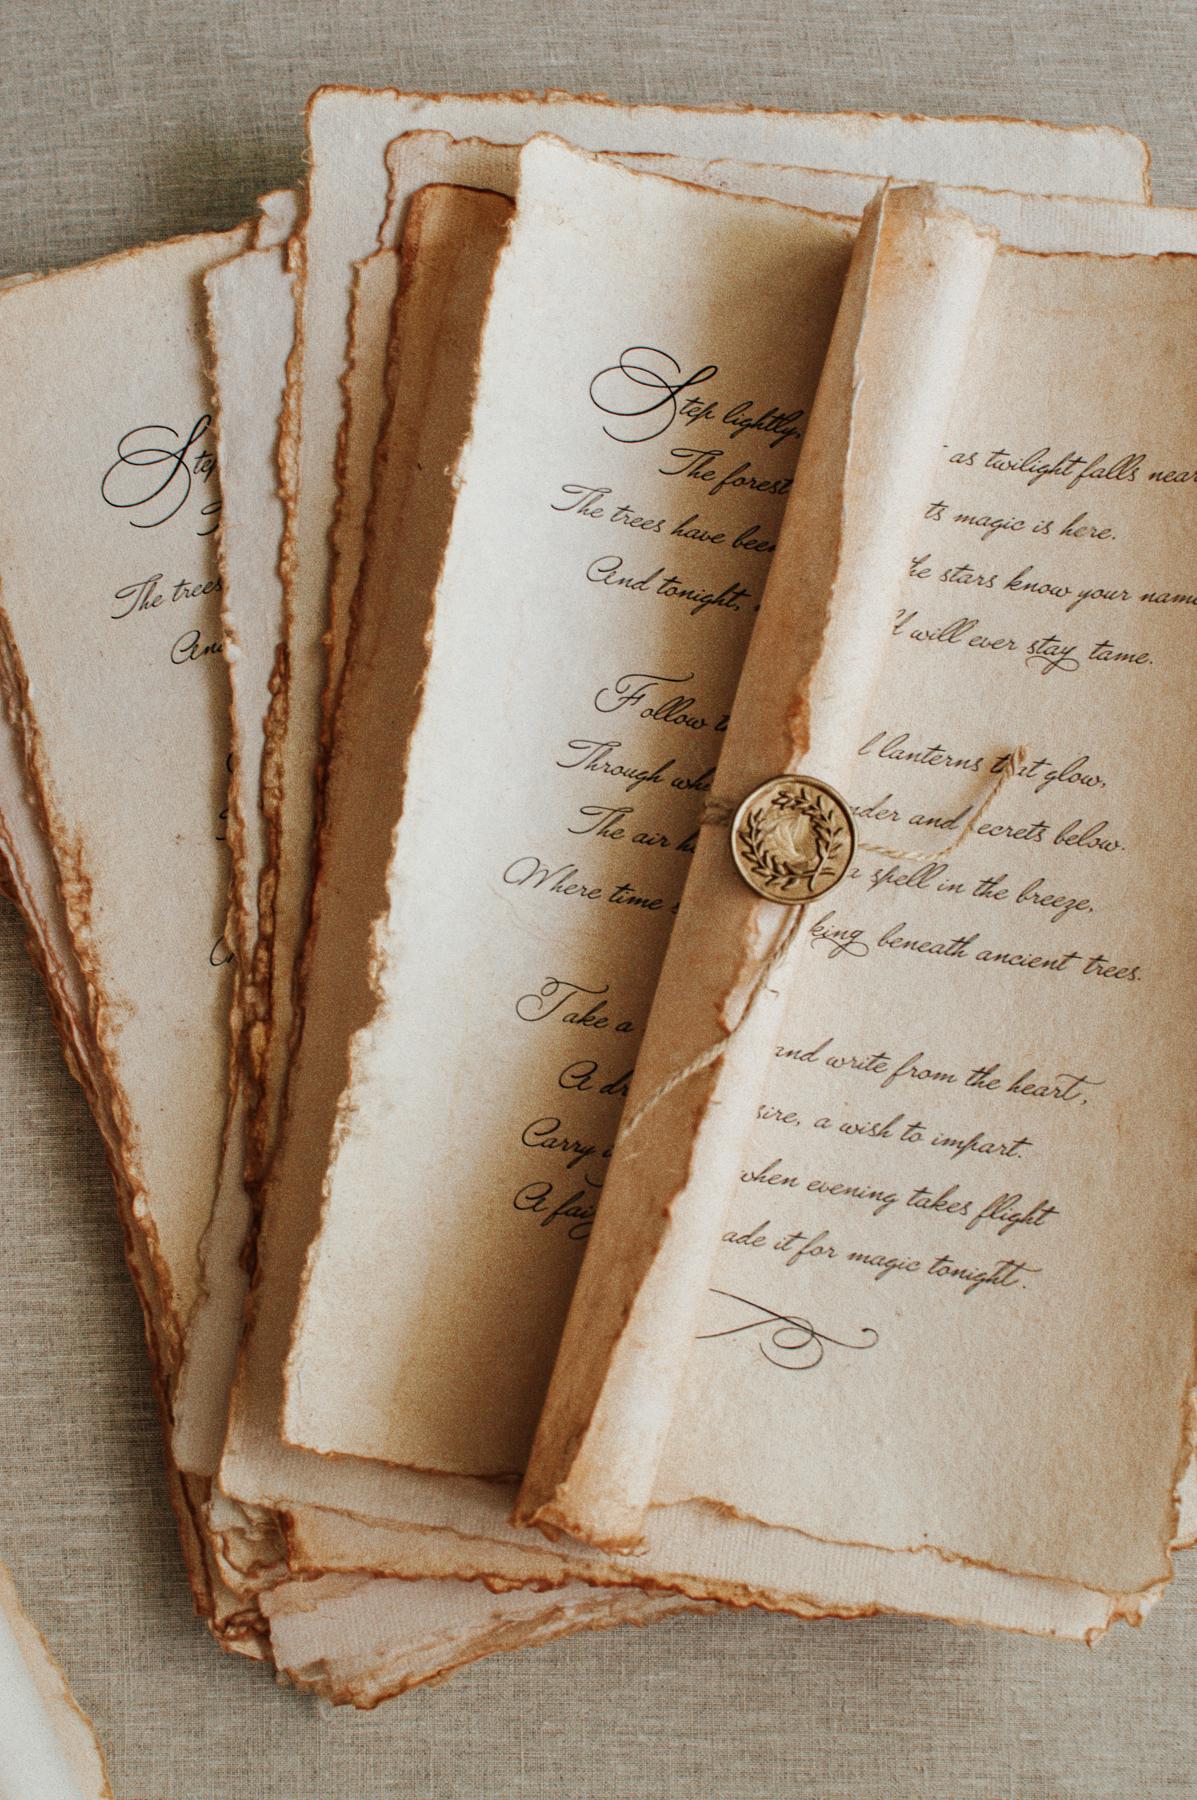 Step
The trees
And
Step lightly, as twilight falls near
The forest ts magic is here.
The trees have been he stars know your name
And tonight, will ever stay tame.
Follow l lanterns that glow,
Through whe nder and secrets below.
The air h a spell in the breeze,
Where time s king beneath ancient trees.
Take a and write from the heart,
A dr sire, a wish to impart.
Carry i when evening takes flight
A fairy ade it for magic tonight.